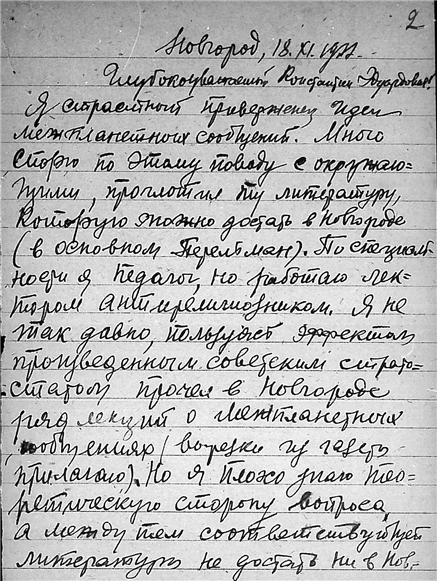 2
Новгород, 18.XI.
Глубокоуважаемый Константин Эдуардович!
Я страстный приверженец идеи
межпланетных сообщений. Много
спорю по этому поводу с окружаю=
щими, проглотил ту литературу,
которую можно достать в Новгороде
(в основном Перельман). По специаль=
ности я педагог, но работаю лек=
тором антирелигиозником. Я не
так давно, пользуясь эффектом
произведенным советским страто=
статом прочел в Новгороде
ряд лекций о межпланетных
сообщениях (вырезки из газеты
прилагаю). Но я плохо знаю тео=
ретическую сторону вопроса,
а между тем соответствующей
литературы не достать ни в Нов-